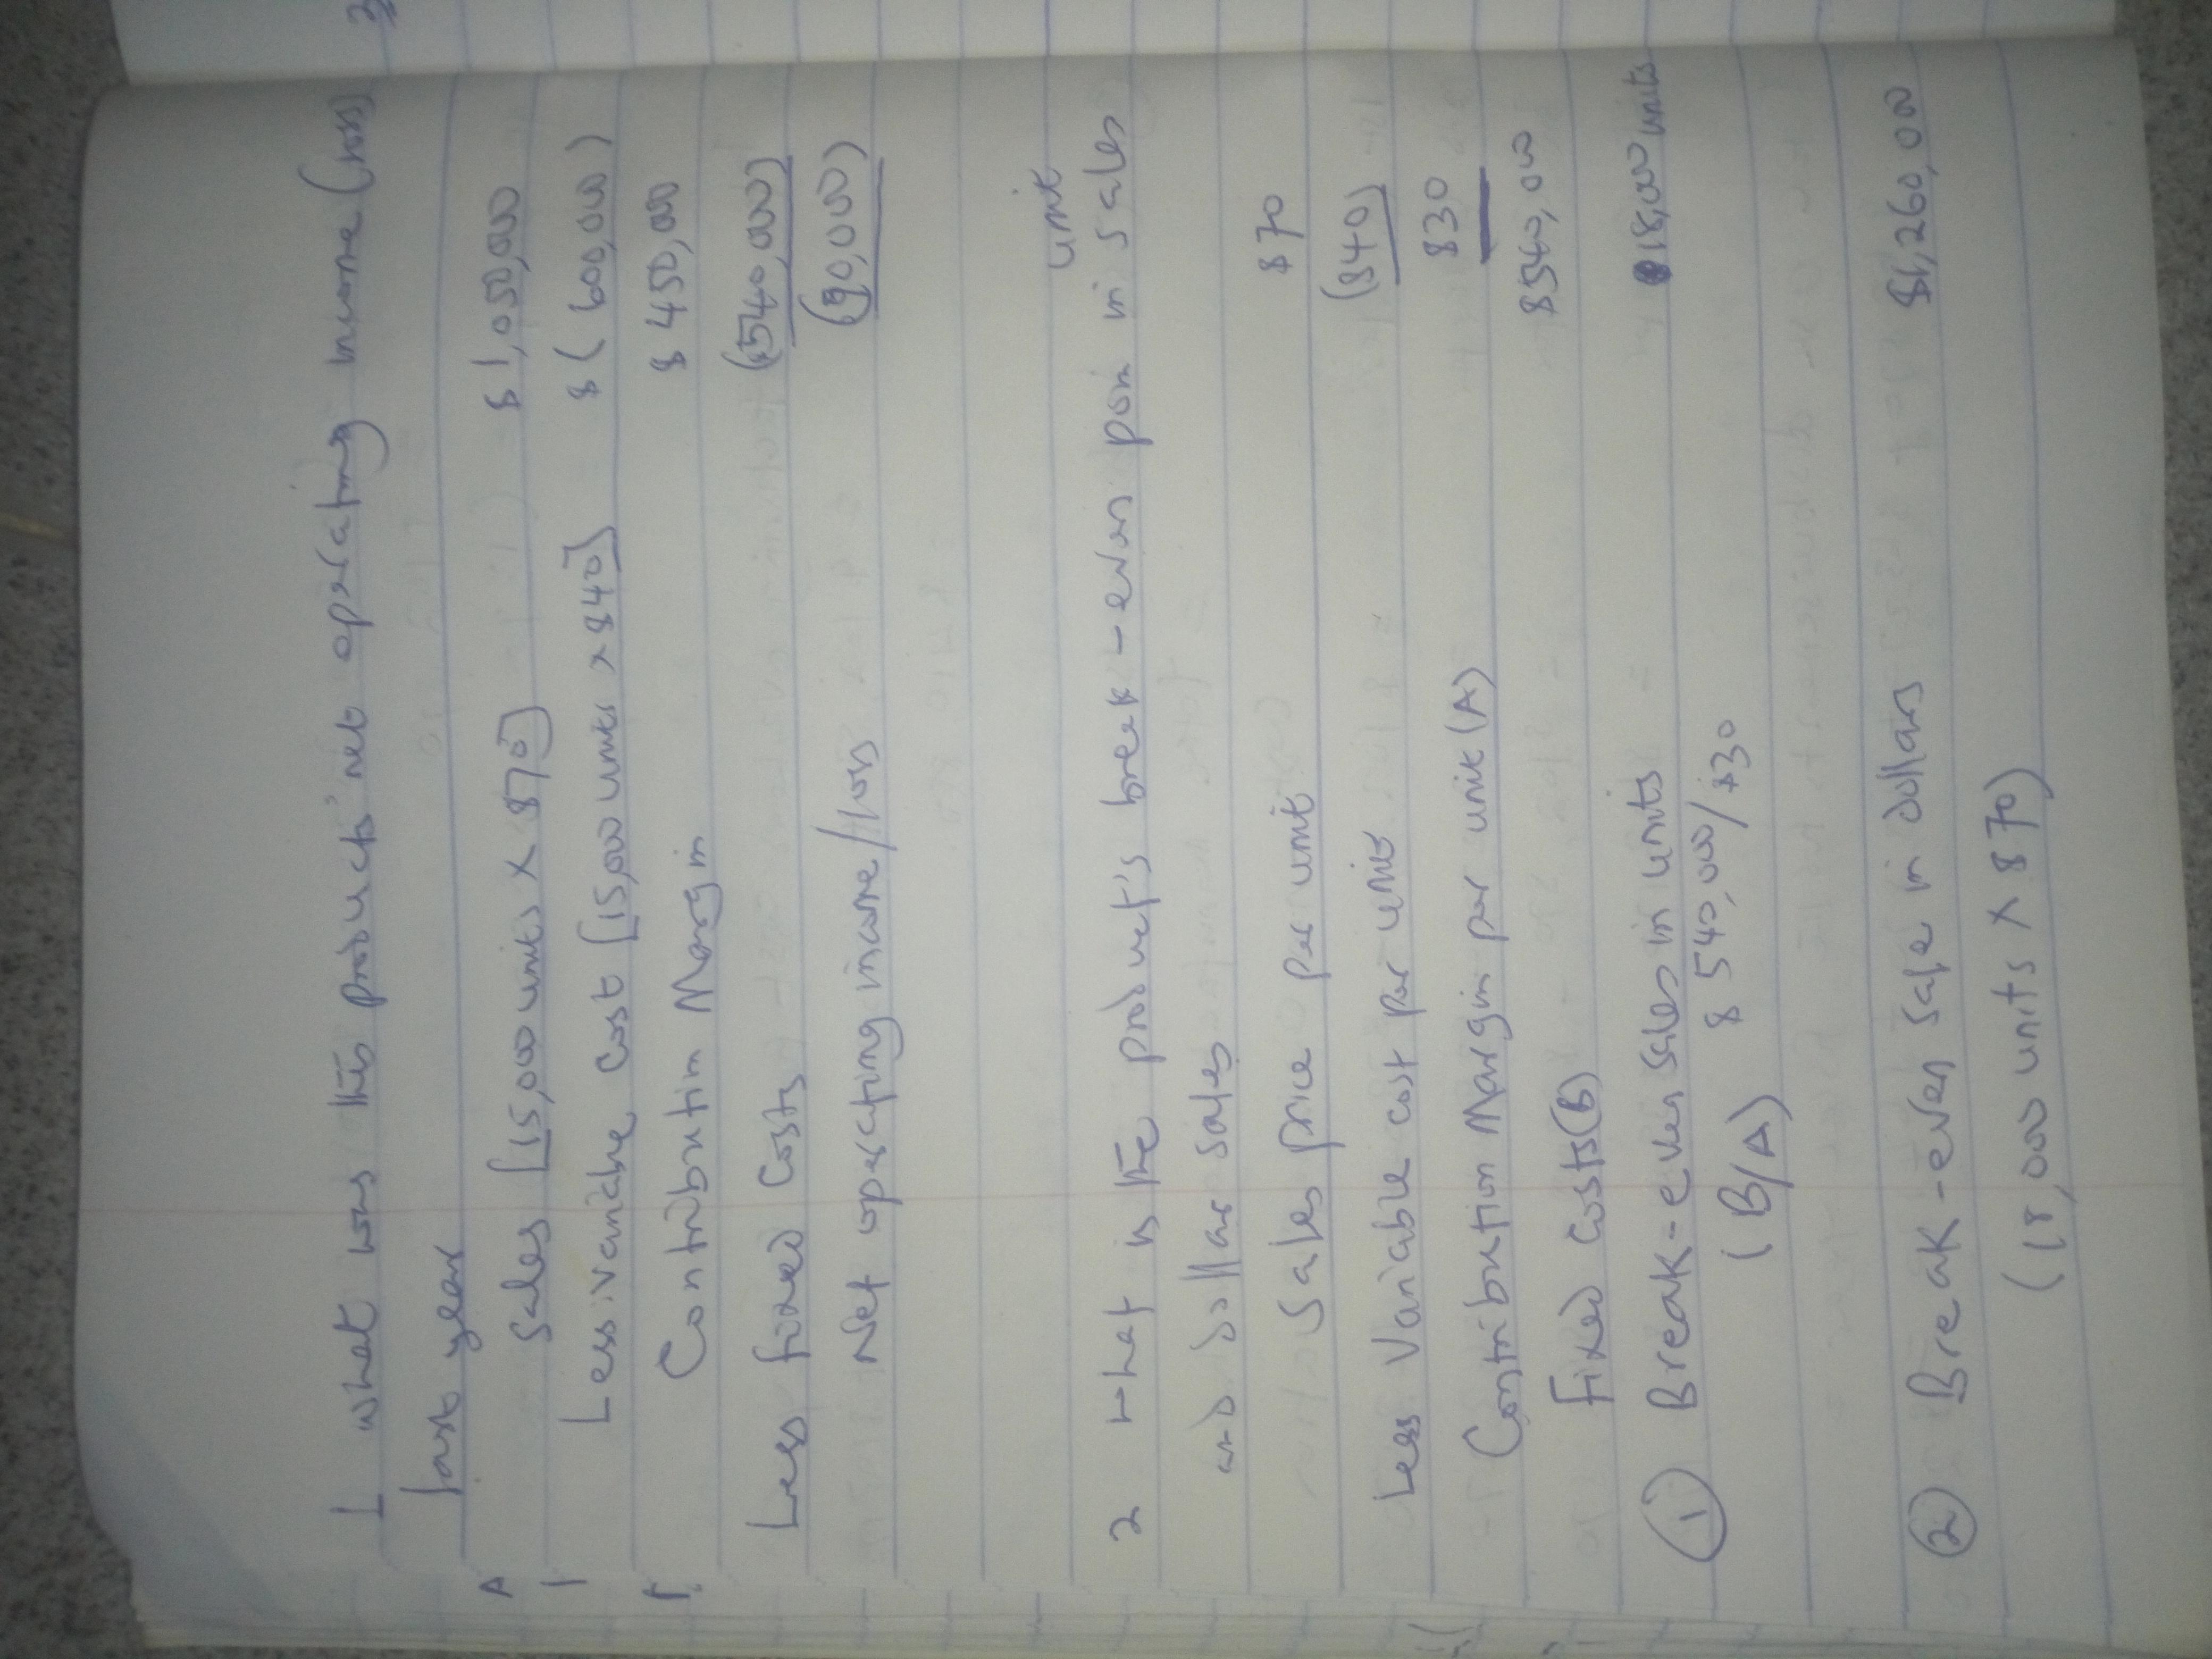 1 What was this product's net operating income (loss)
last year
Sales [15,000 units x $70] $1,050,000
Less variable cost [15,000 units x $40] $(600,000)
Contribution Margin $450,000
Less fixed costs (540,000)
Net operating income/loss (90,000)
2 What is the product's break-even poin in unit sales
and dollar sales
Sales price per unit $70
Less Variable cost per unit ($40)
Contribution Margin per unit (A) $30
Fixed costs (B) $540,000
① Break-even sales in units 18,000 units
(B/A) $540,000/$30
② Break-even sale in dollars $1,260,000
(18,000 units x $70)